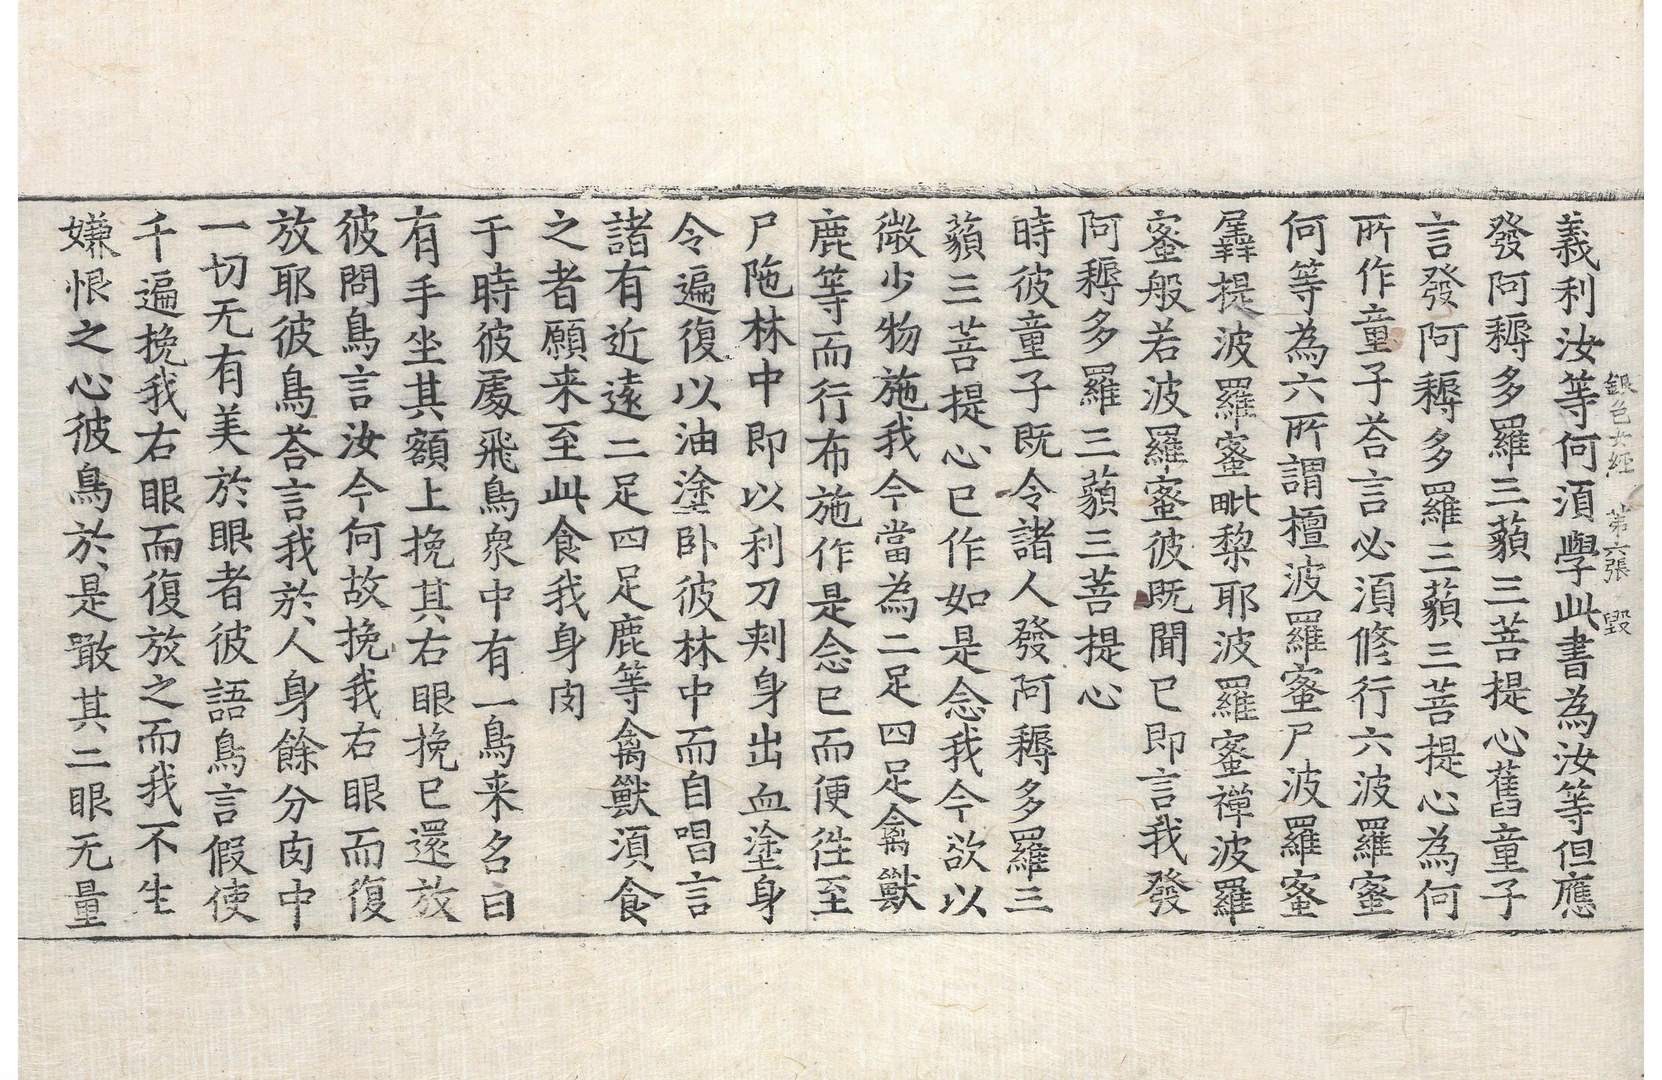 銀色女經　第六張　毀
義利汝等何湏學此書為汝等但應
發阿耨多羅三藐三菩提心舊童子
言發阿耨多羅三藐三菩提心為何
所作童子荅言必湏修行六波羅蜜
何等為六所謂檀波羅蜜尸波羅蜜
羼提波羅蜜毗棃耶波羅蜜禪波羅
蜜般若波羅蜜彼既聞已即言我發
阿耨多羅三藐三菩提心
時彼童子既令諸人發阿耨多羅三
藐三菩提心已作如是念我今欲以
微少物施我今當為二足四足禽獸
鹿等而行布施作是念已而便往至
尸陁林中即以利刀刾身出血塗身
令遍復以油塗卧彼林中而自唱言
諸有近遠二足四足鹿等禽獸湏食
之者願来至此食我身肉
于時彼處飛鳥衆中有一鳥来名曰
有手坐其額上挽其右眼挽已還放
彼問鳥言汝今何故挽我右眼而復
放耶彼鳥荅言我於人身餘分肉中
一切无有美於眼者彼語鳥言假使
千遍挽我右眼而復放之而我不生
嫌恨之心彼鳥於是噉其二眼无量